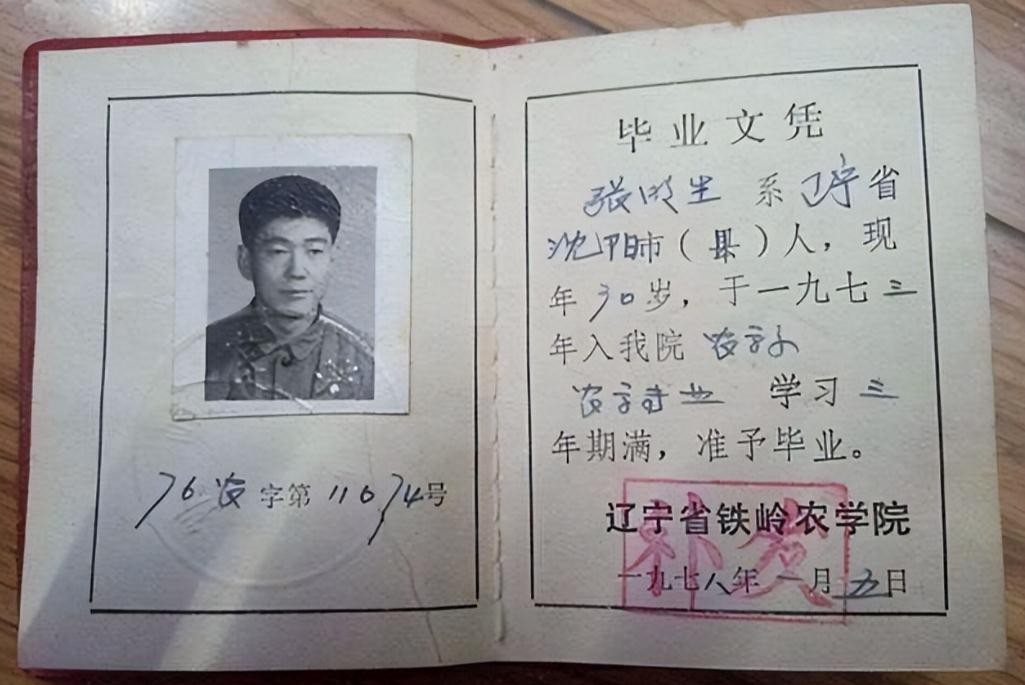 76农字第11674号
毕业文凭
张明生 系 辽宁省
沈阳市（县）人，现
年30岁，于一九七三
年入我院 农学系
农学专业 学习三
年期满，准予毕业。
辽宁省铁岭农学院
补发
一九七八年一月五日